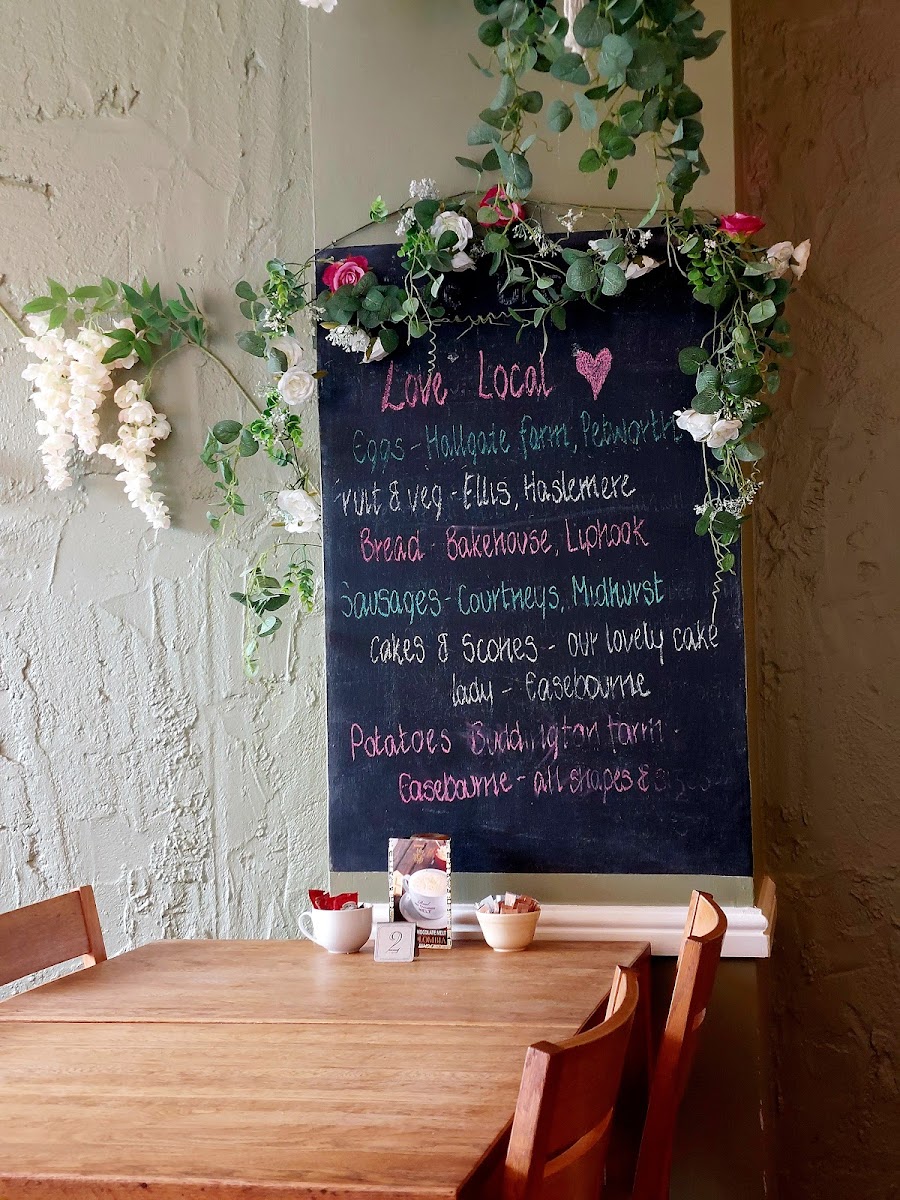 Love Local
Eggs - Hallgate farm, Petworth
ruit & veg - Ellis, Haslemere
Bread - Bakehouse, Liphook
Sausages - Courtneys, Midhurst
Cakes & Scones - our lovely cake
lady - Easebourne
Potatoes Buddington farm -
Easebourne - all shapes & sizes
2
CHOCOLATE MELT